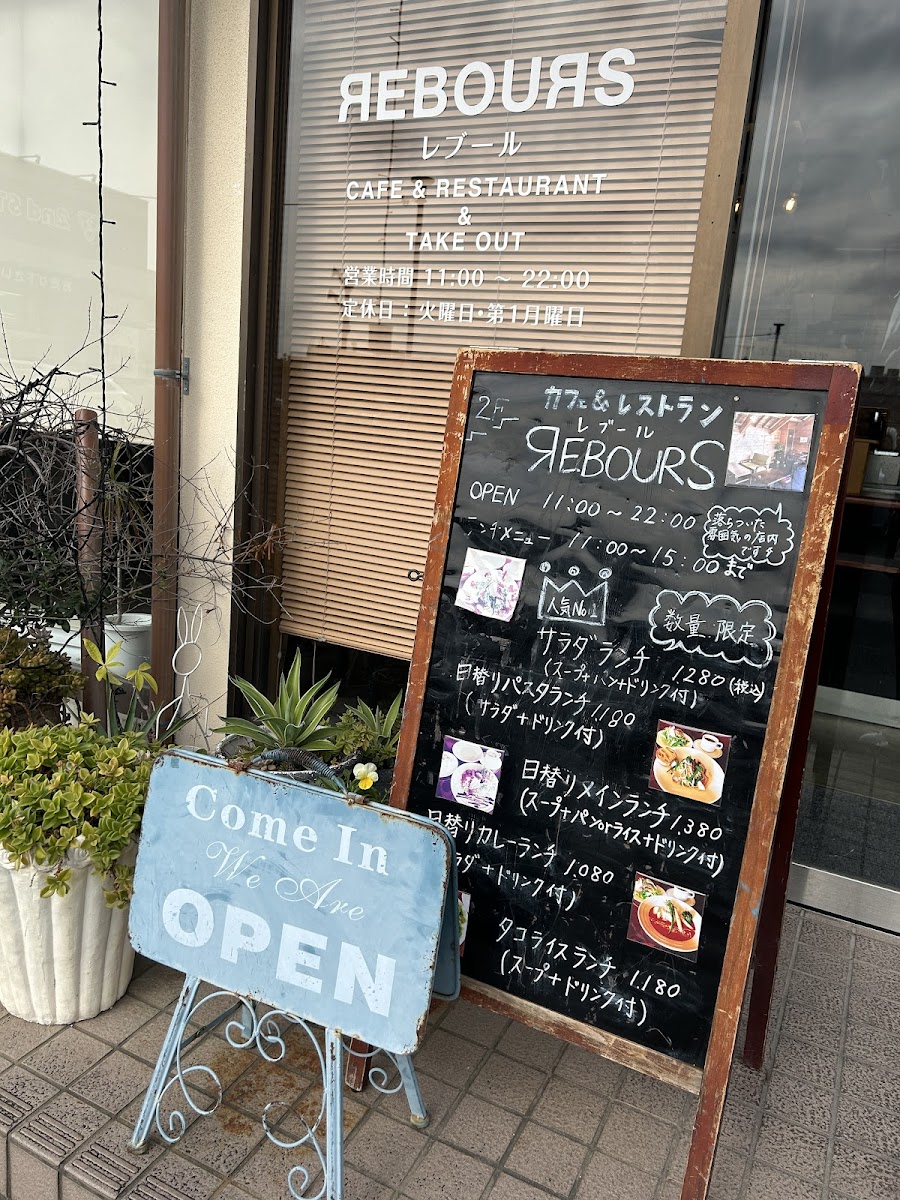 ЯEBOUЯS
レブール
CAFE & RESTAURANT
&
TAKE OUT
営業時間 11:00 ～ 22:00
定休日：火曜日・第1月曜日
2F
カフェ&レストラン
レブール
ЯEBOURS
OPEN 11:00～22:00
落らついた
雰囲気の店内
です
ンチメニュー 11:00～15:00まで
人気No1
数量 限定
サラダランチ 1,280(税込)
(スープ+パン+ドリンク付)
日替りパスタランチ 1,180
(サラダ+ドリンク付)
日替りメインランチ 1,380
(スープ+パンorライス+ドリンク付)
日替りカレーランチ 1,080
ラダ+ドリンク付)
タコライスランチ 1,180
(スープ+ドリンク付)
Come In
We Are
OPEN